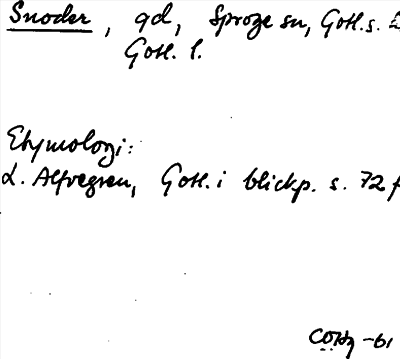 Snoder, gd, Sproge sn, Gotl.s.
Gotl. l.
Etymologi:
L. Alfvegren, Gotl. i blickp. s. 72 f
COHg -61